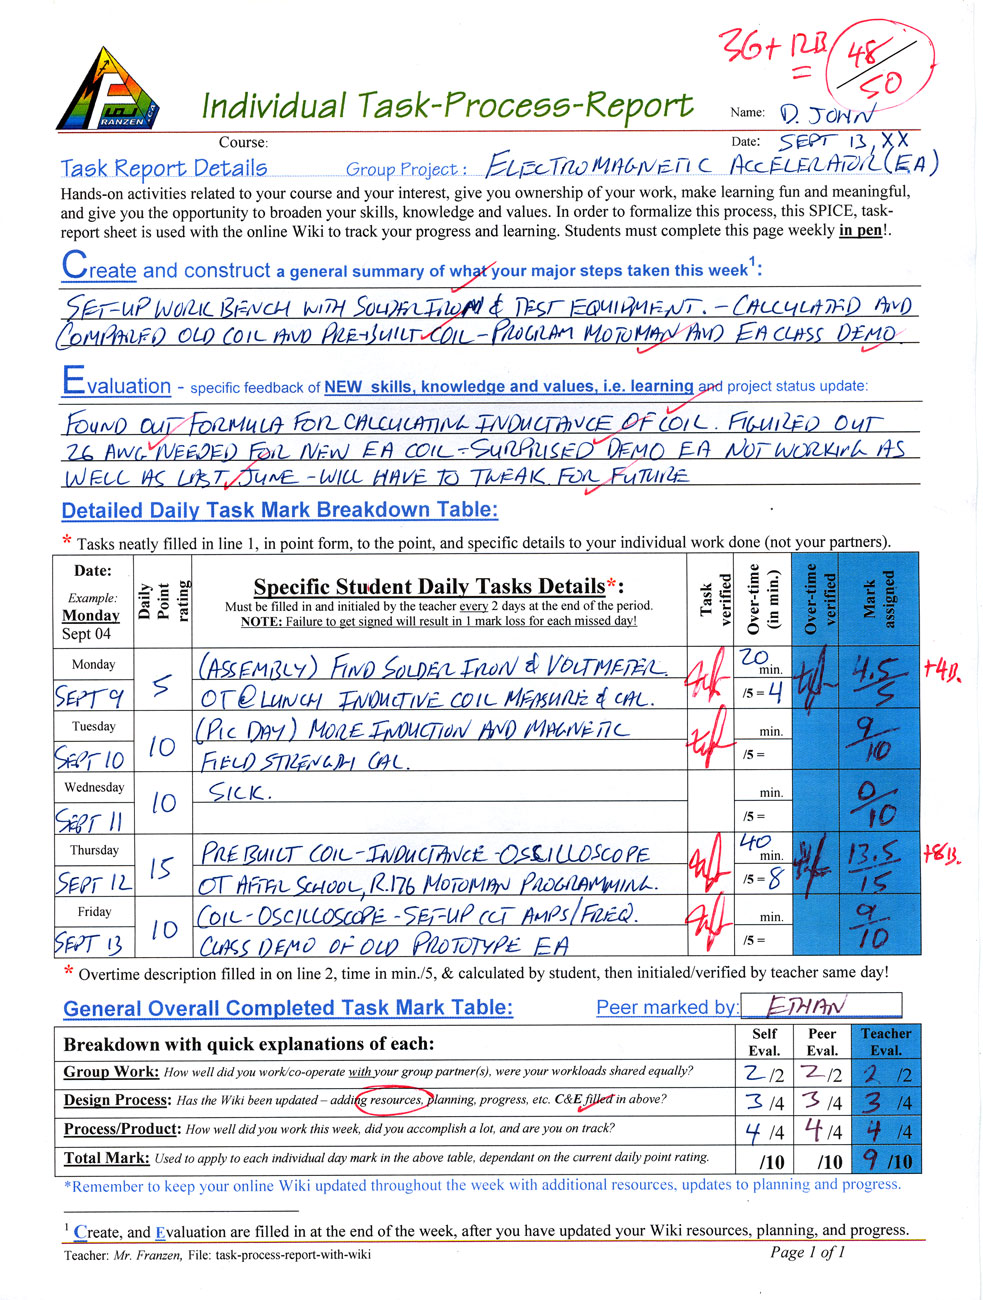 36 + 12B = 48/50
FRANZEN.CA
Individual Task-Process-Report
Name: D. JOHN
Course:
Date: SEPT 13, XX
Task Report Details Group Project: ELECTROMAGNETIC ACCELERATOR (EA)
Hands-on activities related to your course and your interest, give you ownership of your work, make learning fun and meaningful,
and give you the opportunity to broaden your skills, knowledge and values. In order to formalize this process, this SPICE, task-
report sheet is used with the online Wiki to track your progress and learning. Students must complete this page weekly in pen!.
Create and construct a general summary of what your major steps taken this week1:
SET-UP WORK BENCH WITH SOLDER IRON & TEST EQUIPMENT. - CALCULATED AND
COMPARED OLD COIL AND PRE-BUILT COIL - PROGRAM MOTOMAN AND EA CLASS DEMO
Evaluation - specific feedback of NEW skills, knowledge and values, i.e. learning and project status update:
FOUND OUT FORMULA FOR CALCULATING INDUCTANCE OF COIL. FIGURED OUT
26 AWG NEEDED FOR NEW EA COIL - SURPRISED DEMO EA NOT WORKING AS
WELL AS LAST JUNE - WILL HAVE TO TWEAK FOR FUTURE
Detailed Daily Task Mark Breakdown Table:
* Tasks neatly filled in line 1, in point form, to the point, and specific details to your individual work done (not your partners).
Date:
Example:
Monday
Sept 04
Daily Point rating
Specific Student Daily Tasks Details*:
Must be filled in and initialed by the teacher every 2 days at the end of the period.
NOTE: Failure to get signed will result in 1 mark loss for each missed day!
Task verified
Over-time (in min.)
Over-time verified
Mark assigned
Monday (ASSEMBLY) FIND SOLDER IRON & VOLTMETER. 20 min.
SEPT 9 5 OT @ LUNCH INDUCTIVE COIL MEASURE & CAL. /5 = 4 4.5/5 +4B.
Tuesday (PIC DAY) MORE INDUCTION AND MAGNETIC min.
SEPT 10 10 FIELD STRENGTH CAL. /5 = 9/10
Wednesday SICK. min.
SEPT 11 10 /5 = 0/10
Thursday PREBUILT COIL - INDUCTANCE - OSCILLOSCOPE 40 min.
SEPT 12 15 OT AFTER SCHOOL, R.176 MOTOMAN PROGRAMMING. /5 = 8 13.5/15 +8B.
Friday COIL - OSCILLOSCOPE - SET-UP CCT AMPS/FREQ. min.
SEPT 13 10 CLASS DEMO OF OLD PROTOTYPE EA /5 = 9/10
* Overtime description filled in on line 2, time in min./5, & calculated by student, then initialed/verified by teacher same day!
General Overall Completed Task Mark Table: Peer marked by: ETHAN
Breakdown with quick explanations of each: Self Eval. Peer Eval. Teacher Eval.
Group Work: How well did you work/co-operate with your group partner(s), were your workloads shared equally? 2 /2 2 /2 2 /2
Design Process: Has the Wiki been updated – adding resources, planning, progress, etc. C&E filled in above? 3 /4 3 /4 3 /4
Process/Product: How well did you work this week, did you accomplish a lot, and are you on track? 4 /4 4 /4 4 /4
Total Mark: Used to apply to each individual day mark in the above table, dependant on the current daily point rating. /10 /10 9 /10
*Remember to keep your online Wiki updated throughout the week with additional resources, updates to planning and progress.
1 Create, and Evaluation are filled in at the end of the week, after you have updated your Wiki resources, planning, and progress.
Teacher: Mr. Franzen, File: task-process-report-with-wiki Page 1 of 1